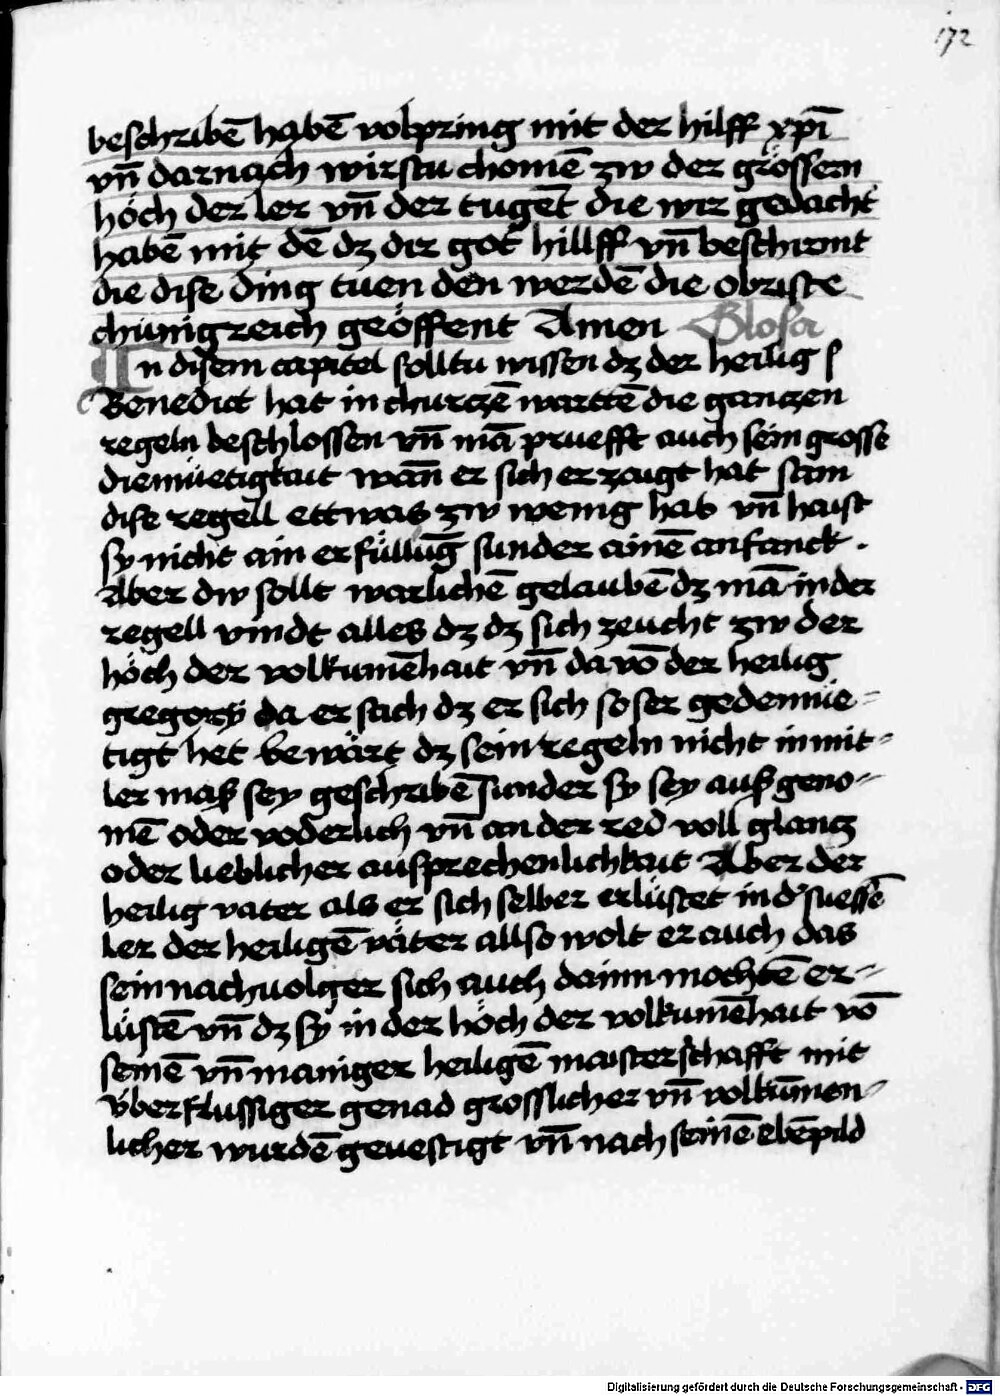 172
beschribē habē volpring mit der hilff xp̄i
vn̄ darnach wirstu chomē zw der grössern
höch der ler vn̄ der tugēt die wir gedacht
habē mit dē dz dir got hillff vn̄ beschirmt
die dise ding tuen den werdē die obriste
chünigreich geöffent Amen Glosa
In disem capitel solltu wissen dz der heilig s
Benedict hat in churczē wartē die ganczen
regeln beschlossen vn̄ mā pruefft auch sein grosse
diemüetigkait wan̄ er sich erzaigt hat sam
dise regell ettwas zw wenig hab vn̄ haist
sy nicht ain erfüllūg sunder ainē anfanck .
Aber dw sollt warlichē gelaubē dz mā in der
regell vindt alles dz dz sich zeucht zw der
höch der volkumēhait vn̄ da vō der heilig
gregorÿ da er sach dz er sich so ser gedemüe=
tigt het bewärt dz sein regeln nicht in mit=
ler maß sey geschribē sunder sy sey auß geno=
mē oder voderlich vn̄ an der red voll glancz
oder lieblicher aufsprechenlichkait Aber der
heilig vater als er sich selber erlüstet in d' suessē
ler der heiligē väter allso wolt er auch das
sein nachuolger sich auch dainn mochtē er=
lüstē vn̄ dz sÿ in der höch der volkumēhait vō
seinē vn̄ maniger heiligē maisterschafft mit
vberflussiger genad grosslicher vn̄ volkūmen=
licher wurdē geuestigt vn̄ nach seinē ebēpild
Digitalisierung gefördert durch die Deutsche Forschungsgemeinschaft - DFG